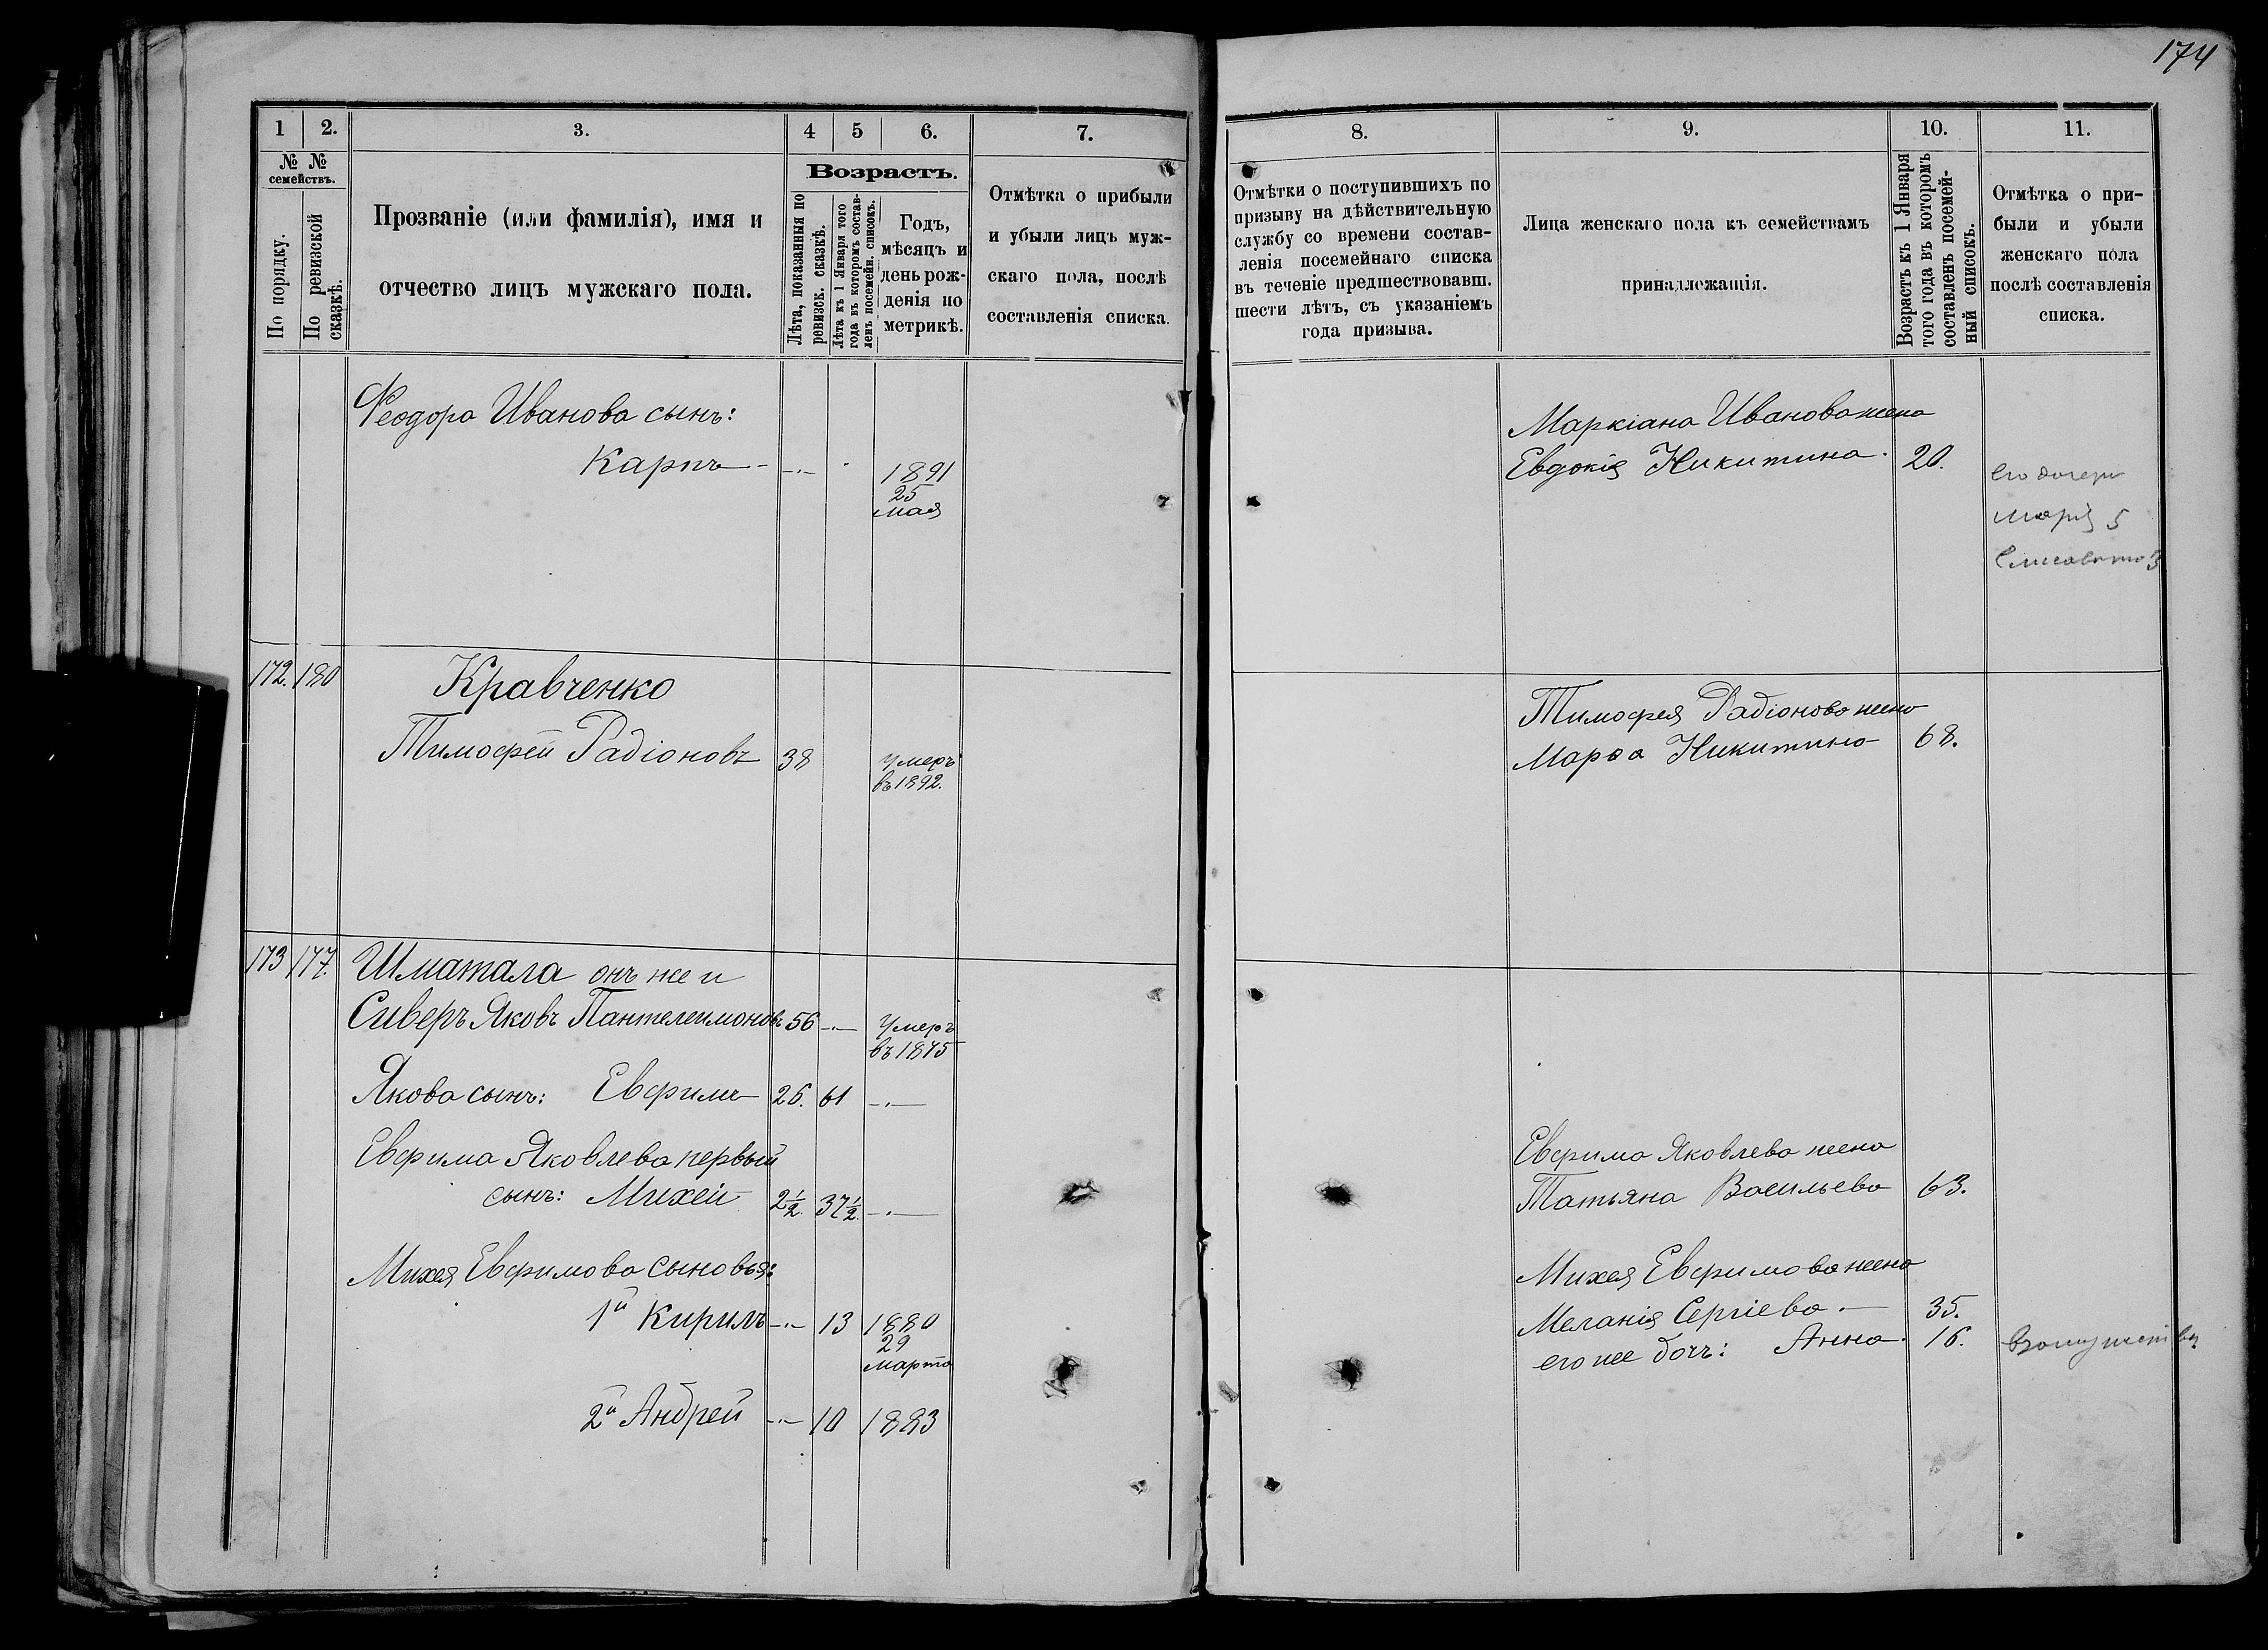 174
1
2.
3.
4
5
6.
7.
№ №
семействъ.
По порядку.
По ревизской
сказкѣ.
Прозваніе (или фамилія), имя и
отчество лицъ мужскаго пола.
Возрастъ.
Лѣта, показанныя по
ревизск. сказкѣ.
Лѣта къ 1 Января того
года въ которомъ состав-
ленъ посемейн. списокъ.
Годъ,
мѣсяцъ и
день рож-
денія по
метрикѣ.
Отмѣтка о прибыли
и убыли лицъ муж-
скаго пола, послѣ
составленія списка.
Феодора Иванова сынъ:
Карпъ
1891
25
мая
172. 180
Кравченко
Тимофей Радіоновъ 38 Умеръ
въ 1892.
173 177. Шматала онъ же и
Сиверъ Яковъ Пантелеимоновъ 56 Умеръ
въ 1875
Якова сынъ: Евфимъ 26. 61
Евфима Яковлева первый
сынъ: Михей 2½. 37½.
Михея Евфимова сыновья:
1й Кирилъ 13 1880
29
марта
2й Андрей 10 1883
8.
9.
10.
11.
Отмѣтки о поступившихъ по
призыву на дѣйствительную
службу со времени состав-
ленія посемейнаго списка
въ теченіе предшествовавш.
шести лѣтъ, съ указаніемъ
года призыва.
Лица женскаго пола къ семействамъ
принадлежащія.
Возрастъ къ 1 Января
того года въ которомъ
составленъ посемей-
ный списокъ.
Отмѣтка о при-
были и убыли
женскаго пола
послѣ составленія
списка.
Маркіана Иванова жена
Евдокія Никитина. 20.
его дочери
Марія 5
Елисавета 3
Тимофея Радіонова жена
Марѳа Никитина 68.
Евфима Яковлева жена
Татьяна Васильева 63.
Михея Евфимова жена
Меланія Сергіева. 35.
его же дочь: Анна. 16.